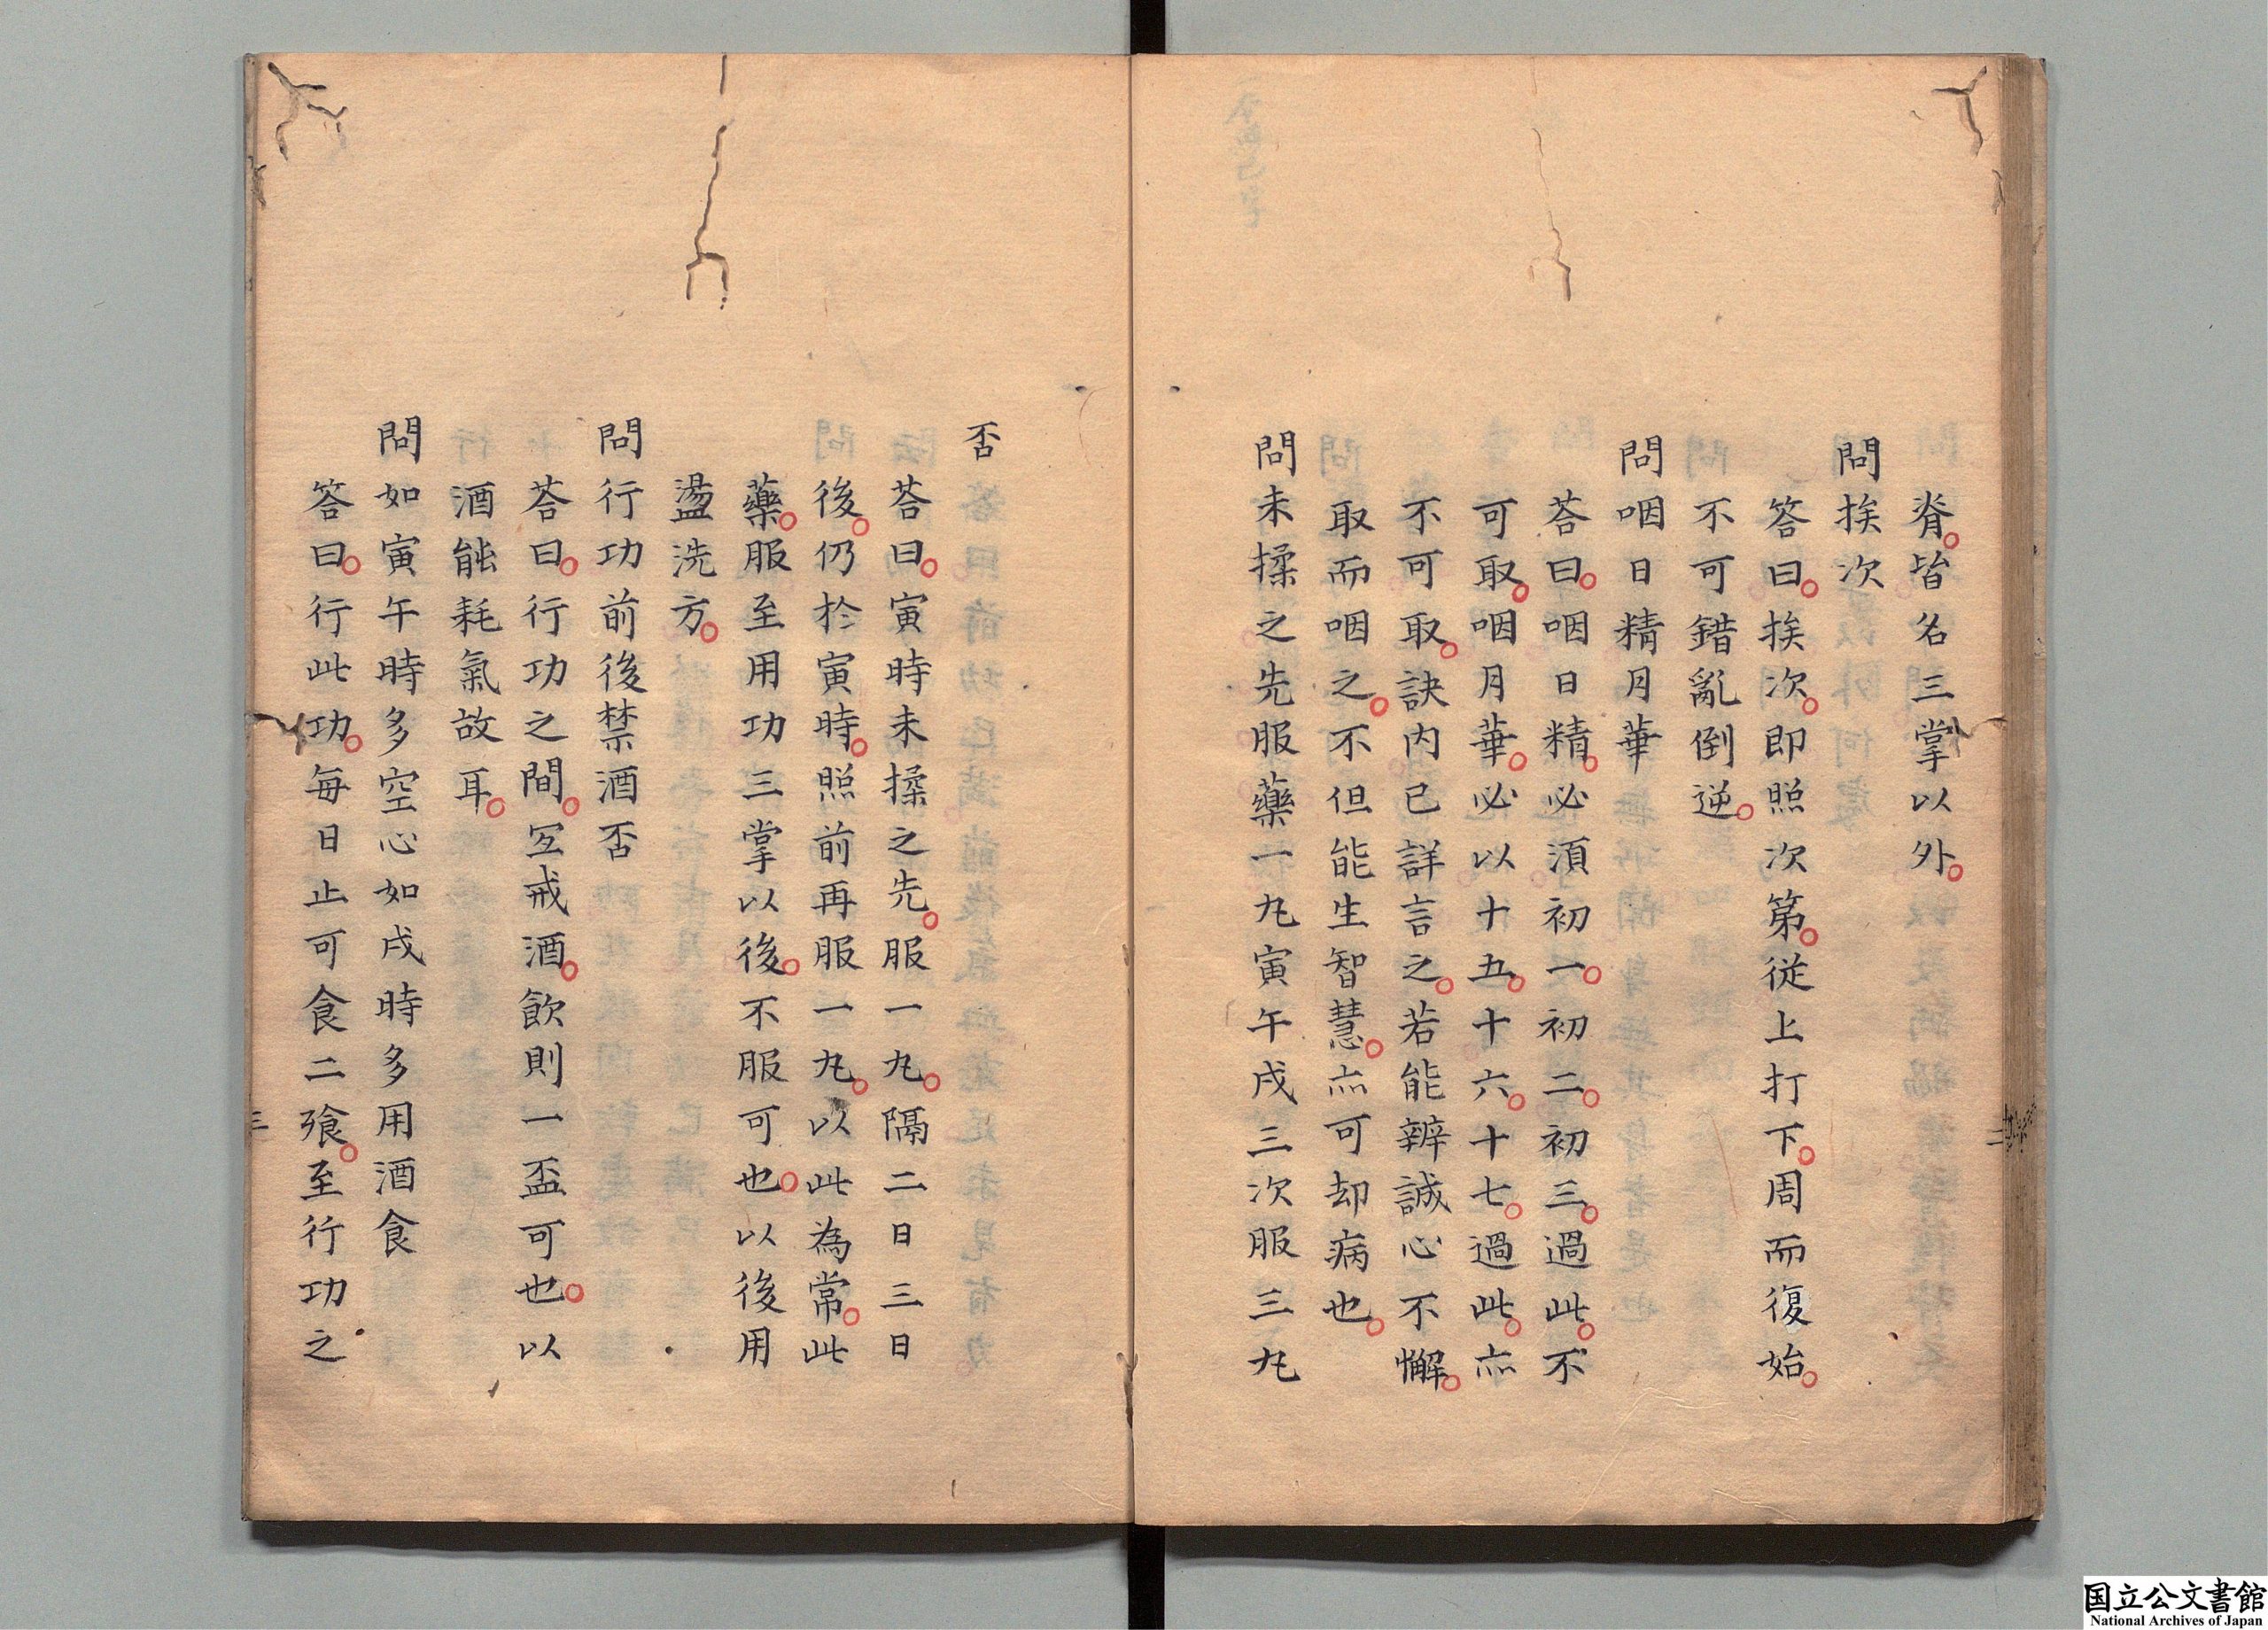 脊。皆名三掌以外。
問挨次
答曰。挨次。即照次第。從上打下。周而復始。
不可錯亂倒逆。
問咽日精月華
荅曰。咽日精。必須初一。初二。初三。過此。不
可取。咽月華。必以十五。十六。十七。過此。亦
不可取。訣内已詳言之。若能辦誠心不懈。
取而咽之。不但能生智慧。亦可却病也。
問未揉之先服藥一丸寅午戌三次服三丸
否
荅曰。寅時未揉之先。服一丸。隔二日三日
後。仍於寅時。照前再服一丸。以此為常。此
藥。服至用功三掌以後。不服可也。以後用
盪洗方。
問行功前後禁酒否
荅曰。行功之間。宐戒酒。飲則一盃可也。以
酒能耗氣故耳。
問如寅午時多空心如戌時多用酒食
答曰。行此功。每日止可食二飡。至行功之
国立公文書館
National Archives of Japan